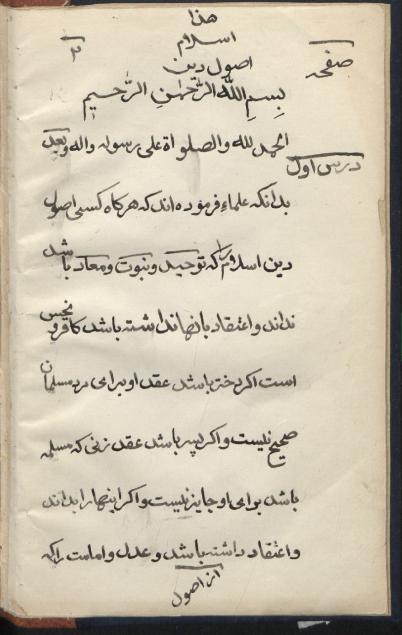 هذا
اسلام
اصول دین
صفحه ۲
بسم الله الرحمن الرحیم
الحمد لله والصلواة علی رسوله واله وبعد
درس اول
بدانکه علماء فرموده اند که هرکاه کسی اصول
دین اسلام را که توحید و نبوت و معاد باشد
نداند و اعتقاد بانها نداشته باشد کافر و نجس
است اکر دختر باشد عقد او برای مرد مسلمان
صحیح نیست و اکر پسر باشد عقد زنی که مسلمه
باشد برای او جایز نیست و اکر اینها را بداند
و اعتقاد داشته باشد و عدل و امامت را که
از اصول